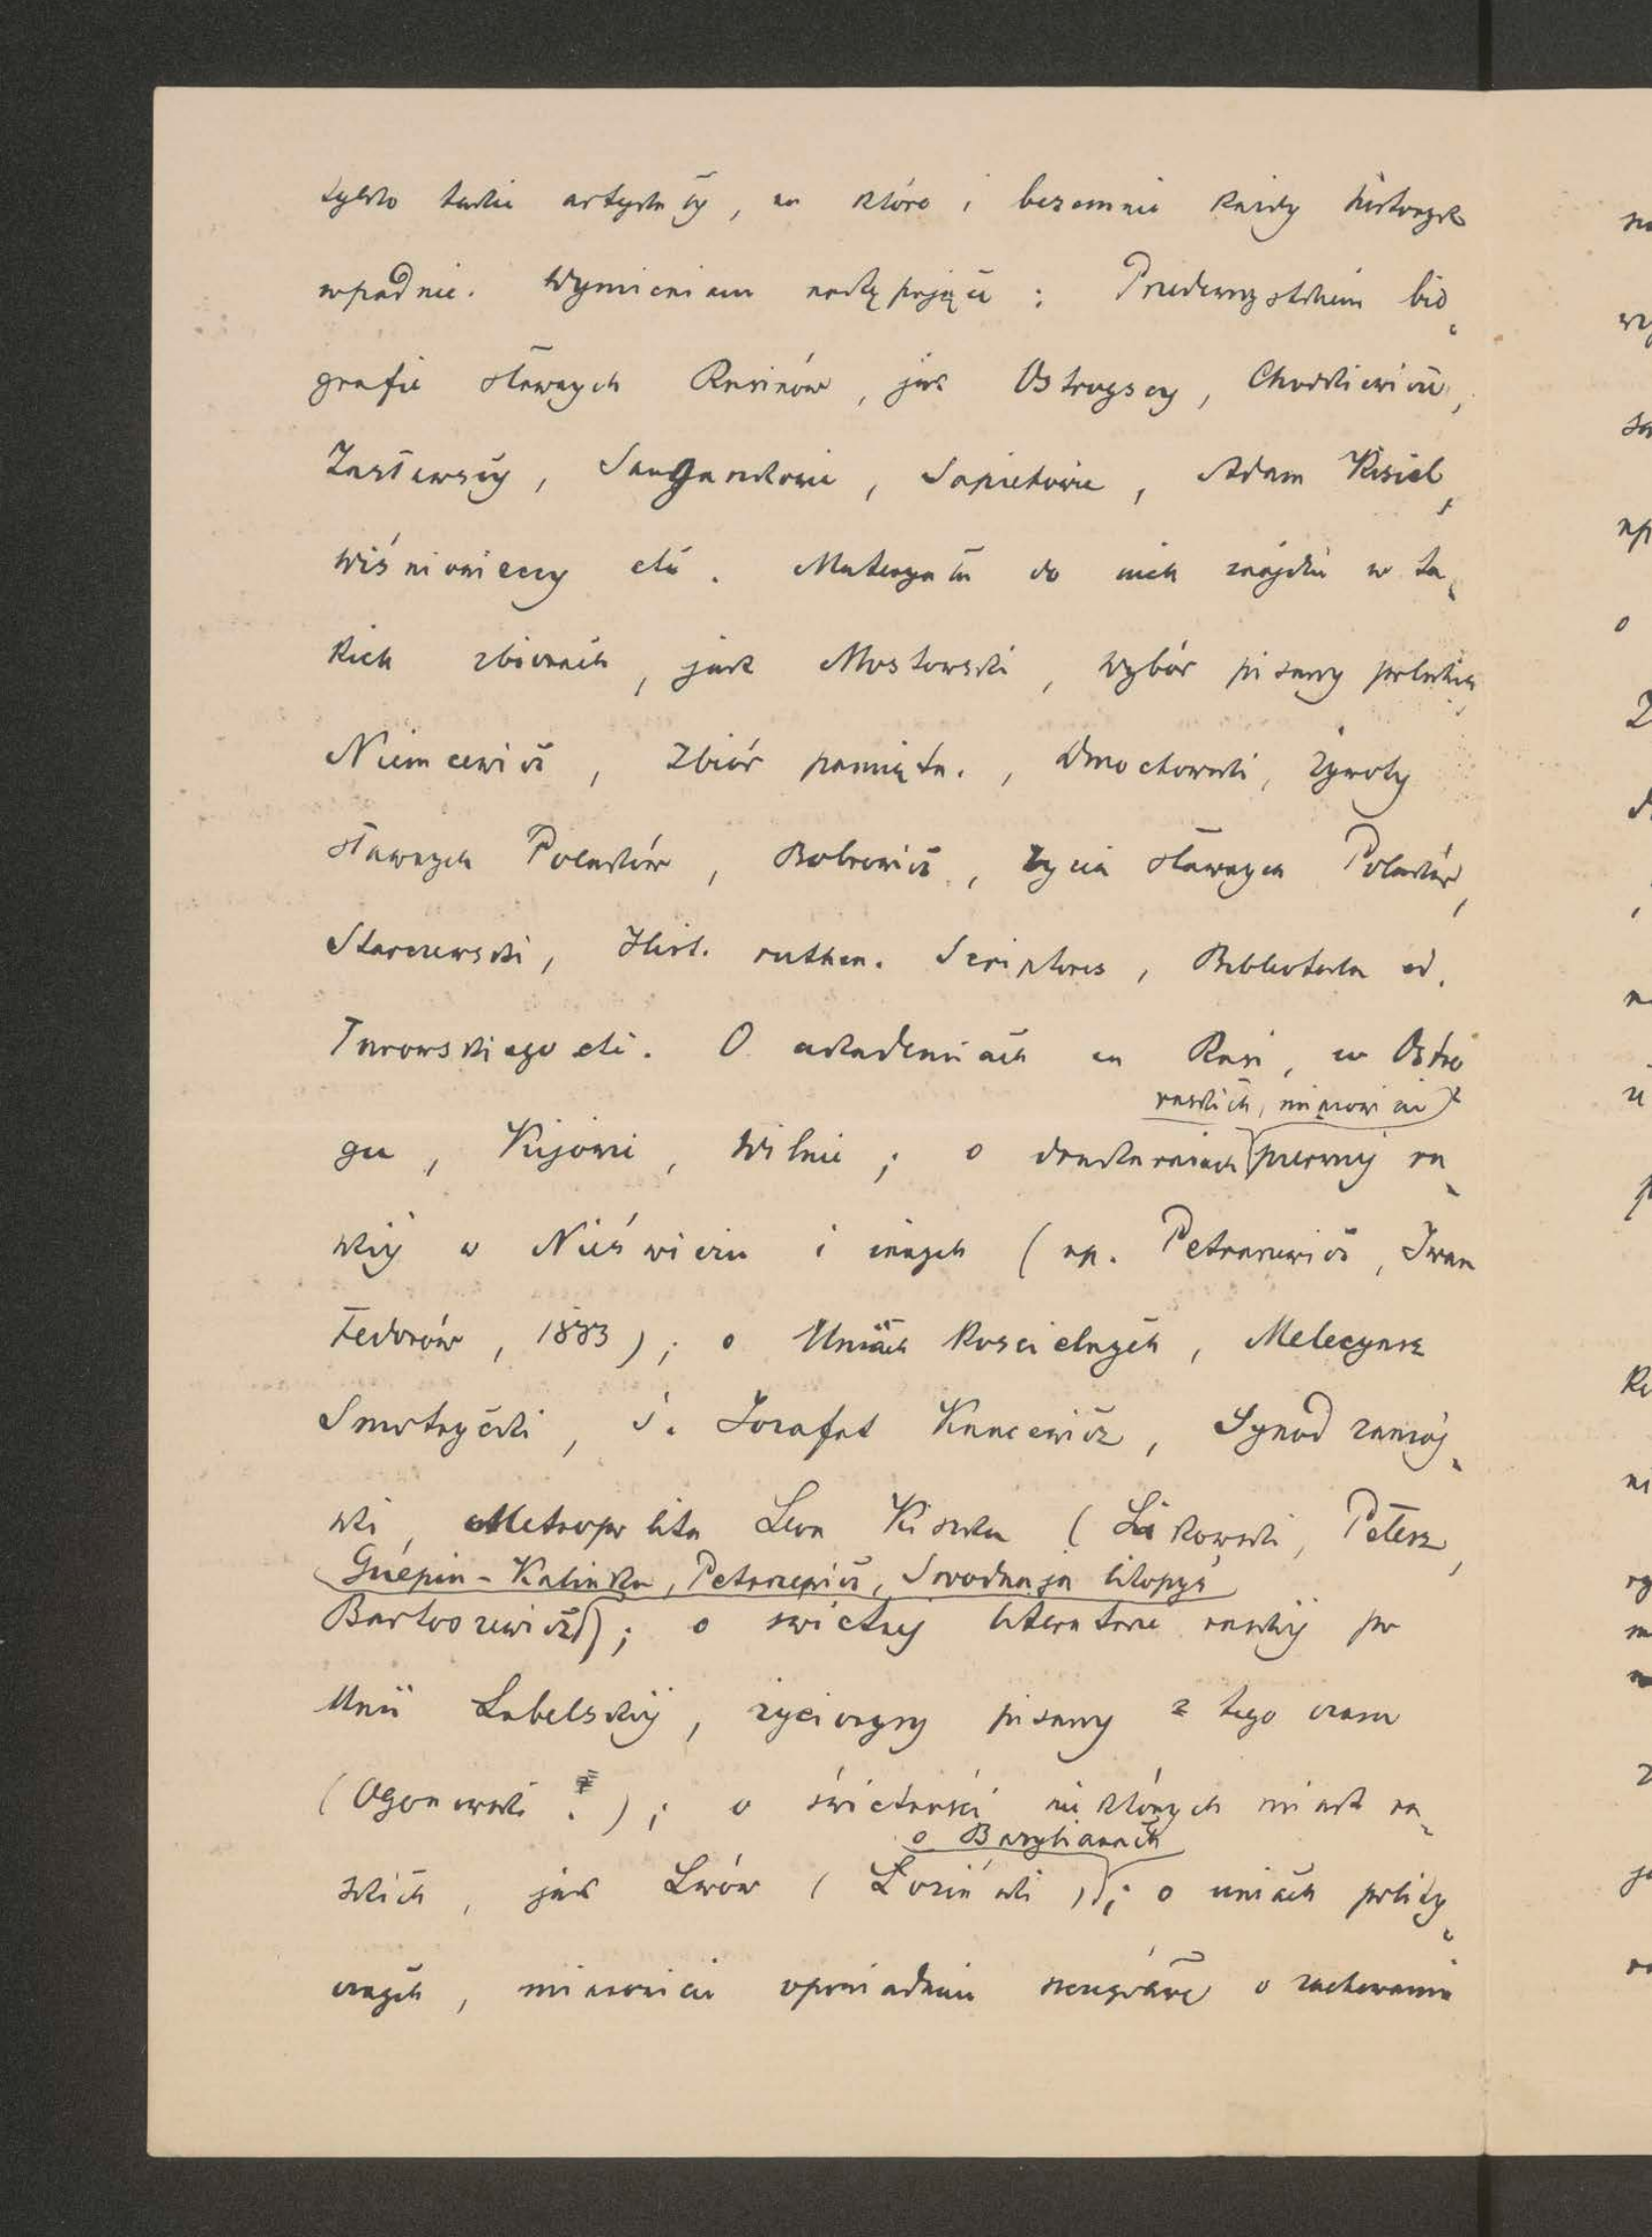 tylko takie artykuły, na które i bezemnie każdy historyk
wpadnie. Wymieniam następujące : Przedewszystkiem bio„
grafie sławnych Rusinów, jak Ostrogscy, Chodkiewicze,
Zasławscy, Sanguszkowie, Sapiehowie, Adam Kisiel,
Wiśniowieccy etc. Materyały do nich znajdzie w ta„
kich zbiorach, jak Mostowski, Wybór pisarzy polskich,
Niemcewicz, Zbiór pamiętn., Dmochowski, Żywoty
sławnych Polaków, Bobrowicz, Życia sławnych Polaków,
Starczewski, Hist. ruthen. Scriptores, Biblioteka ed.
Turowskiego etc. O akademiach na Rusi, w Ostro
gu, Kijowie, Wilnie ; o drukarniach
ruskich, mianowicie
pierwszej ru„
skiej w Nieświeżu i innych (np. Petruszewicz, Iwan
Fedorów, 1883) ; o Uniach kościelnych, Melecyusz
Smotrzycki, ś. Jozafat Kuncewicz, Synod zamoj„
ski, Metropolita Leon Kiszka (Likowski, Pelesz,
Guépin - Kalinka, Petruszewicz, Swodnaja litopyś
Bartoszewicz) ; o świetnej literaturze ruskiej po
Unii Lubelskiej, życiorysy pisarzy z tego czasu
(Ogonowski .) ; o świetności niektórych miast ru„
skich, jak Lwów (Łoziński) ;
o Bazylianach
; o uniach polity„
cznych, mianowicie opowiadanie o zachowaniu